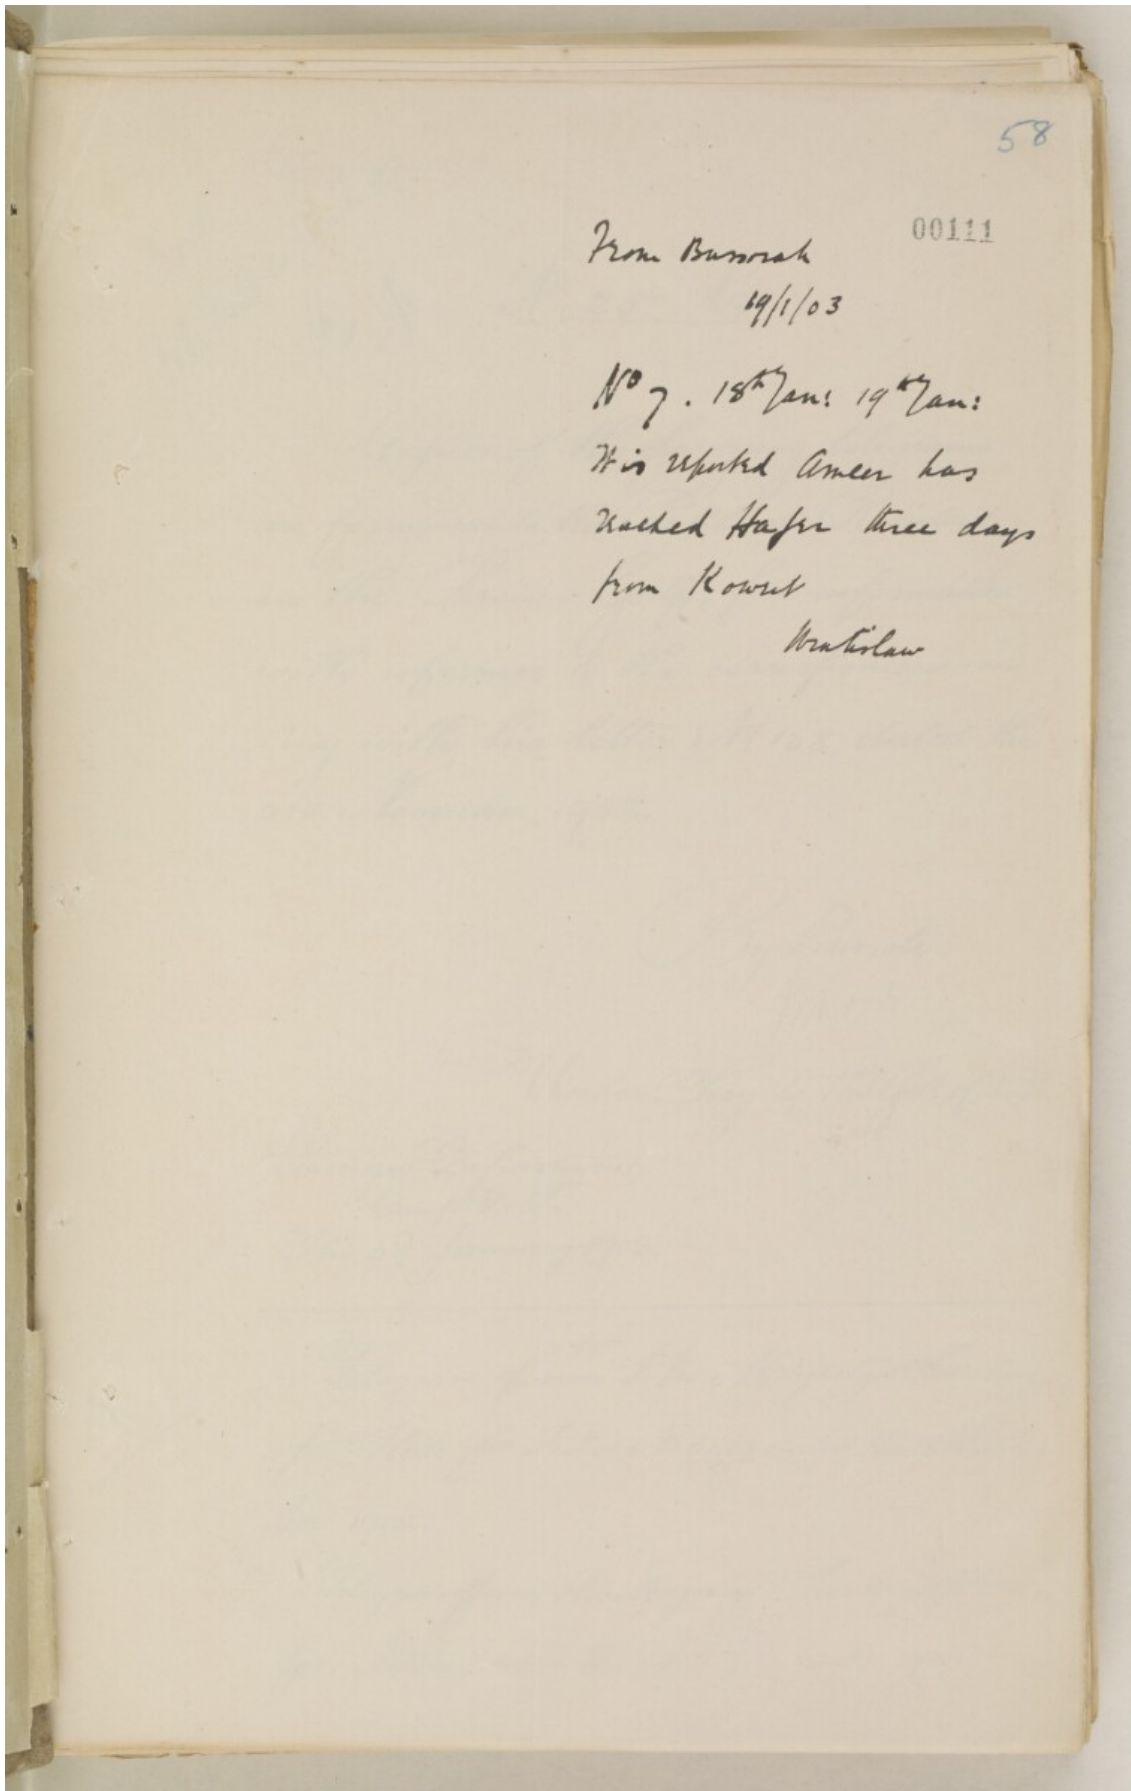 58
00111
From Bussorah
19/1/03
No 7. 18th Jan: 19th Jan:
It is reported Ameer has
reached Hafer three days
from Koweit
Wratislaw